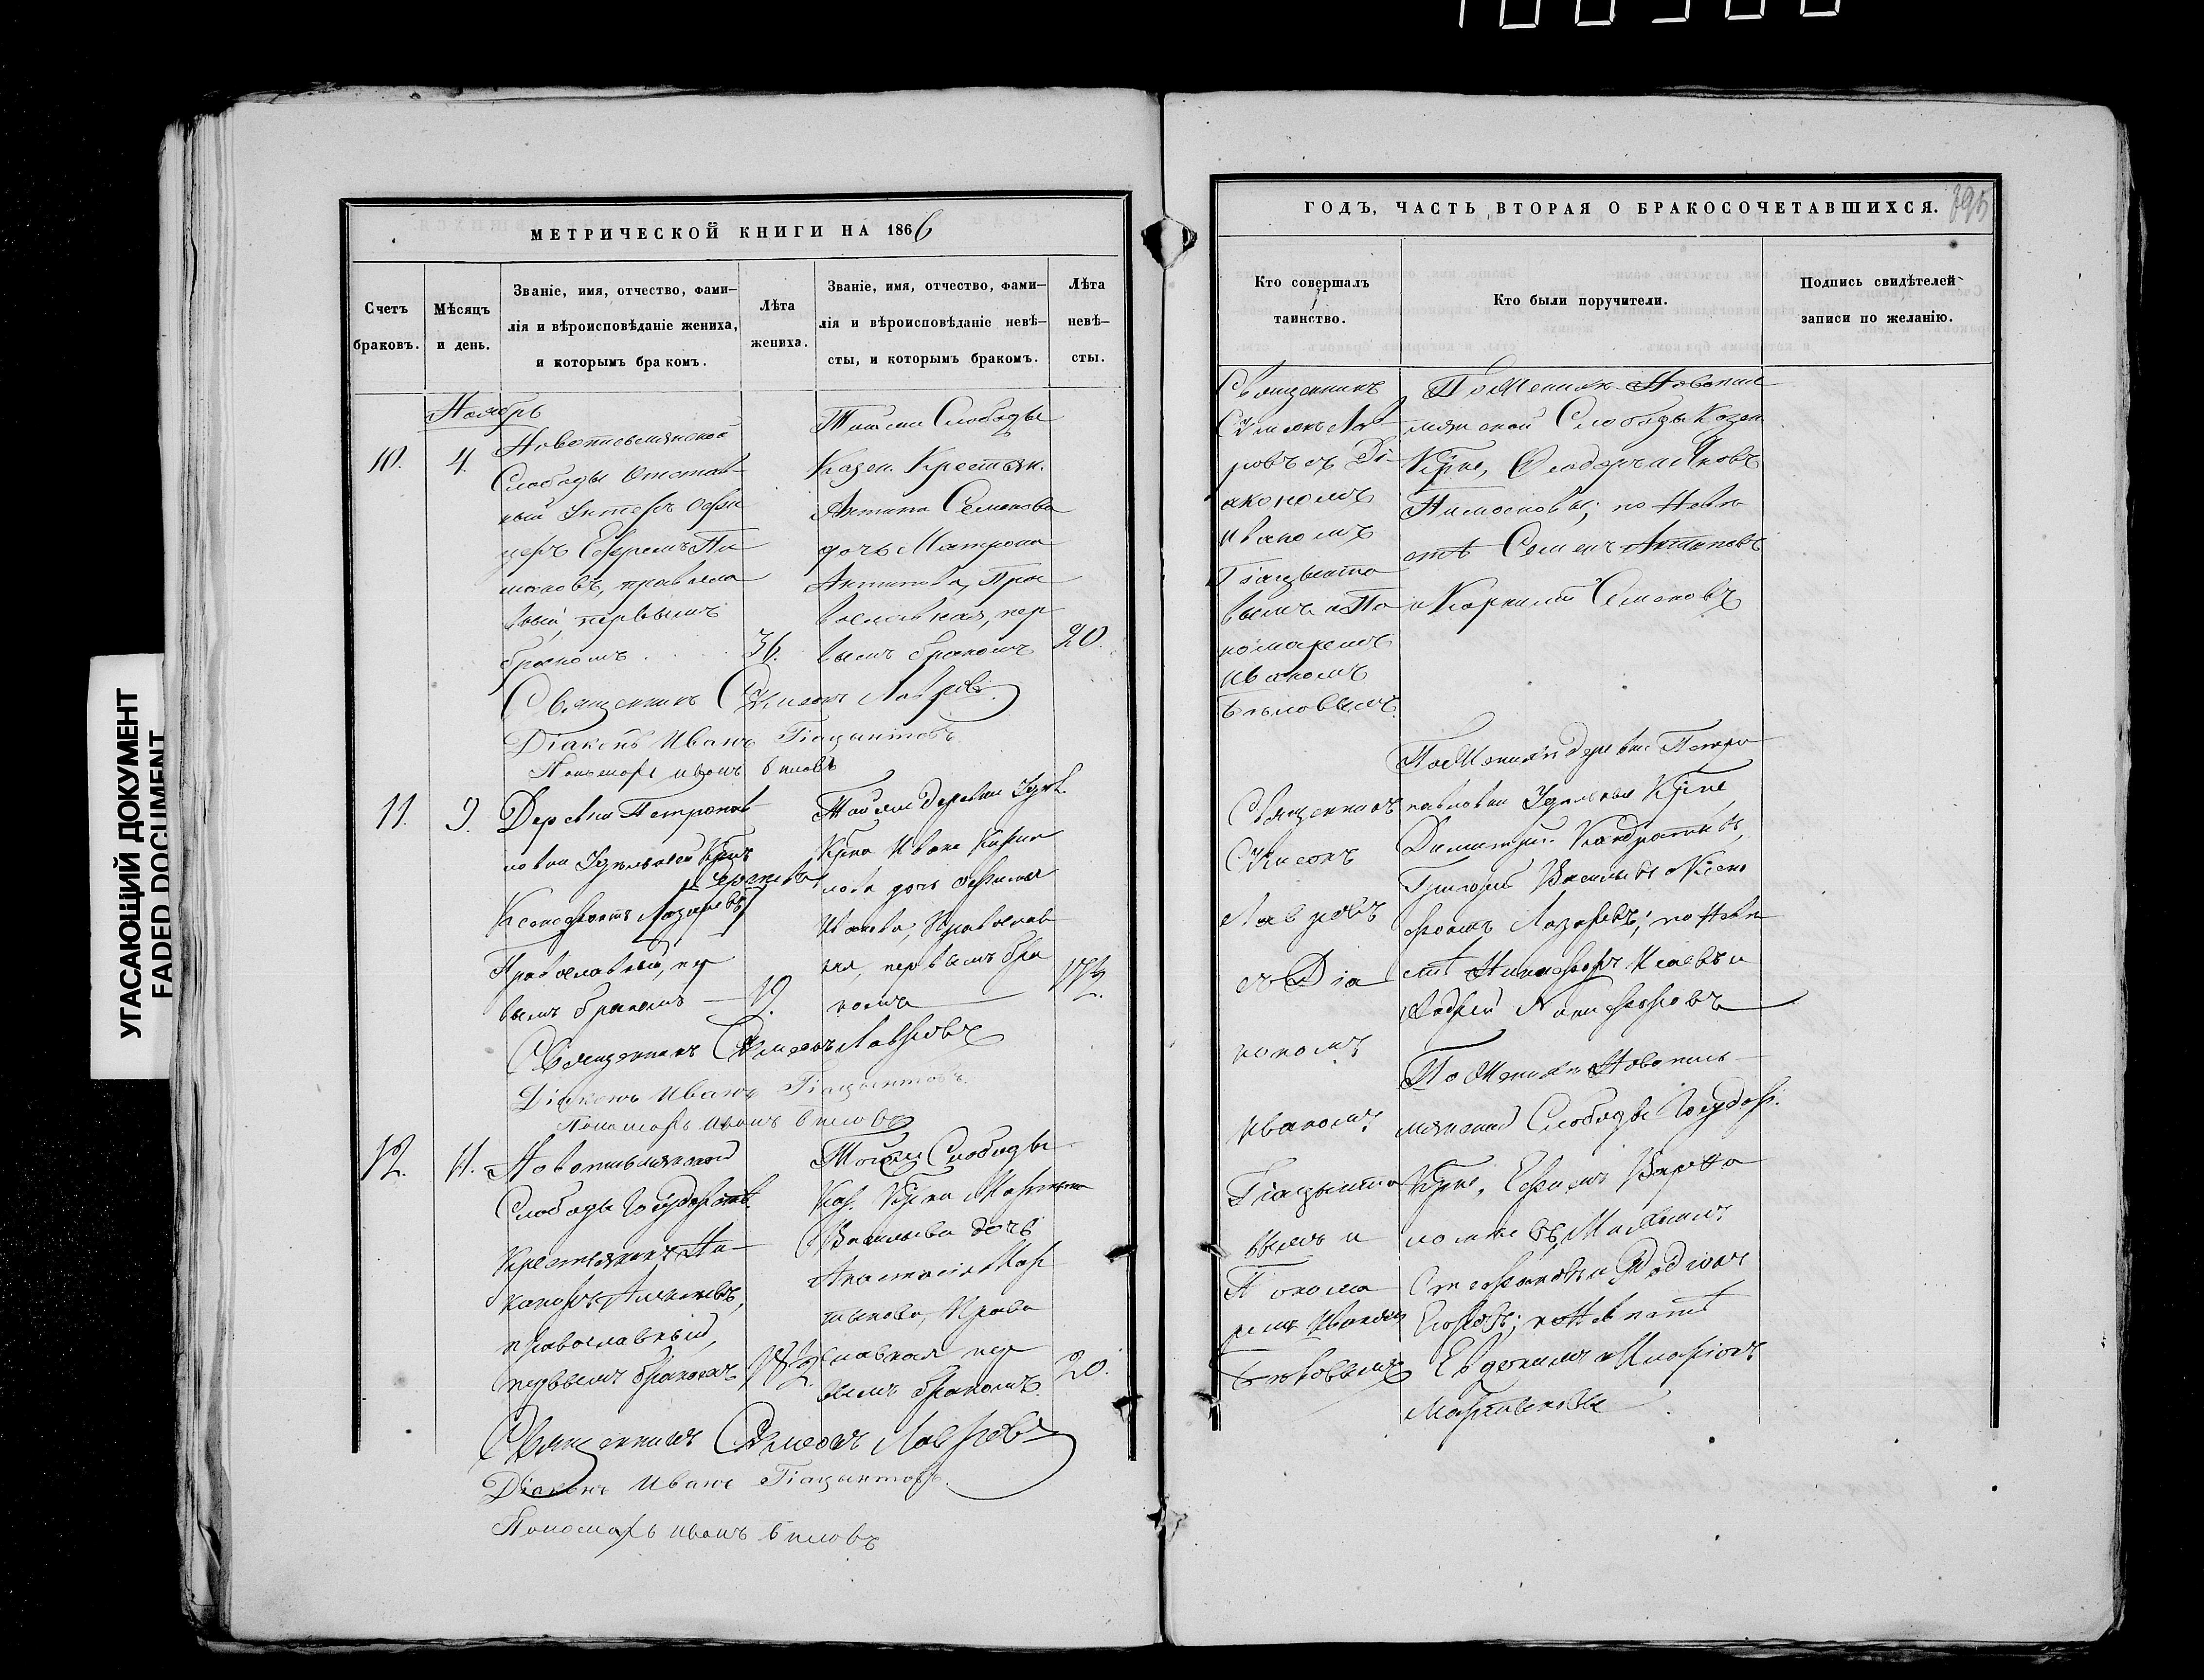 УГАСАЮЩИЙ ДОКУМЕНТ
FADED DOCUMENT
МЕТРИЧЕСКОЙ КНИГИ НА 1866
Счетъ браковъ.
Мѣсяцъ и день.
Званіе, имя, отчество, фами-
лія и вѣроисповѣданіе жениха,
и которымъ бракомъ.
Лѣта
жениха.
Званіе, имя, отчество, фами-
лія и вѣроисповѣданіе невѣ-
сты, и которымъ бракомъ.
Лѣта
невѣ-
сты.
Ноябрь
10.
4.
Новописьмянской
Слободы Отстав-
ный Унтеръ Офи
церъ Ефремъ Пи
моновъ, правосла
вный, первымъ
бракомъ
36.
Тойже Слободы
Казен. Крестьян.
Антипа Семенова
дочь Матрона
Антипова, Пра
вославная, пер
вымъ бракомъ
20.
Священникъ Сѵмеонъ Лавровъ
Діаконъ Иванъ Гіацынтовъ
Пономарь Иванъ Бѣловъ
11.
9.
Деревни Петропав
ловки Удѣльной
Ксенофонтъ Лазаревъ
Православный, пер
вымъ бракомъ
19.
Тойже деревни Удѣл.
Крна Ивана Кирил
лова дочь Ефимия
Иванова, Православ
ная, первымъ бра
комъ
Священникъ Сѵмеонъ Лавровъ
Діаконъ Иванъ Гіацынтовъ
Пономарь Иванъ Бѣловъ
12.
11.
Новописьмянской
Слободы Государств.
Крестьянинъ Ни
каноръ
православный,
первымъ бракомъ
Тойже Слободы
Каз. Крна Мартына
Васильева дочь
Анастасія Мар
тынова, Право
славная пер
вымъ бракомъ
20.
Священникъ Сѵмеонъ Лавровъ
Діаконъ Иванъ Гіацынтовъ
Пономарь Иванъ Бѣловъ
ГОДЪ, ЧАСТЬ ВТОРАЯ О БРАКОСОЧЕТАВШИХСЯ.
Кто совершалъ
таинство.
Кто были поручители.
Подпись свидѣтелей
записи по желанію.
Священникъ
Сѵмеонъ Лав-
ровъ съ Ді-
акономъ
Иваномъ
Гіацынто
вымъ и По
номаремъ
Иваномъ
Бѣловымъ.
По Женихѣ Новопись
мянской Слободы Казен.
Крне, Ѳеодоръ и Яковъ
Пимоновы; по Невѣ
стѣ Семенъ Антиповъ
и Корнилій Семеновъ
Священникъ
Сѵмеонъ
Лавровъ
съ Діа
кономъ
Иваномъ
Гіацынто
вымъ и
Понома
ремъ Иваномъ
Бѣловымъ
По Женихѣ деревни Петро
павловки Удѣльные Крне
Димитрій Кондратьевъ,
Григорій Васильевъ и Ксено
фонтъ Лазаревъ; по Невѣ
стѣ Никифоръ Исаевъ и
Андрей Никифоровъ
По Женихѣ Новопись-
мянской Слободы Государ.
Крне, Ефимъ Варѳо
ломѣевъ, Максимъ
Стефановъ и Родіонъ
Егоровъ; по Невѣстѣ
Евдокимъ и Иларіонъ
Мартыновы